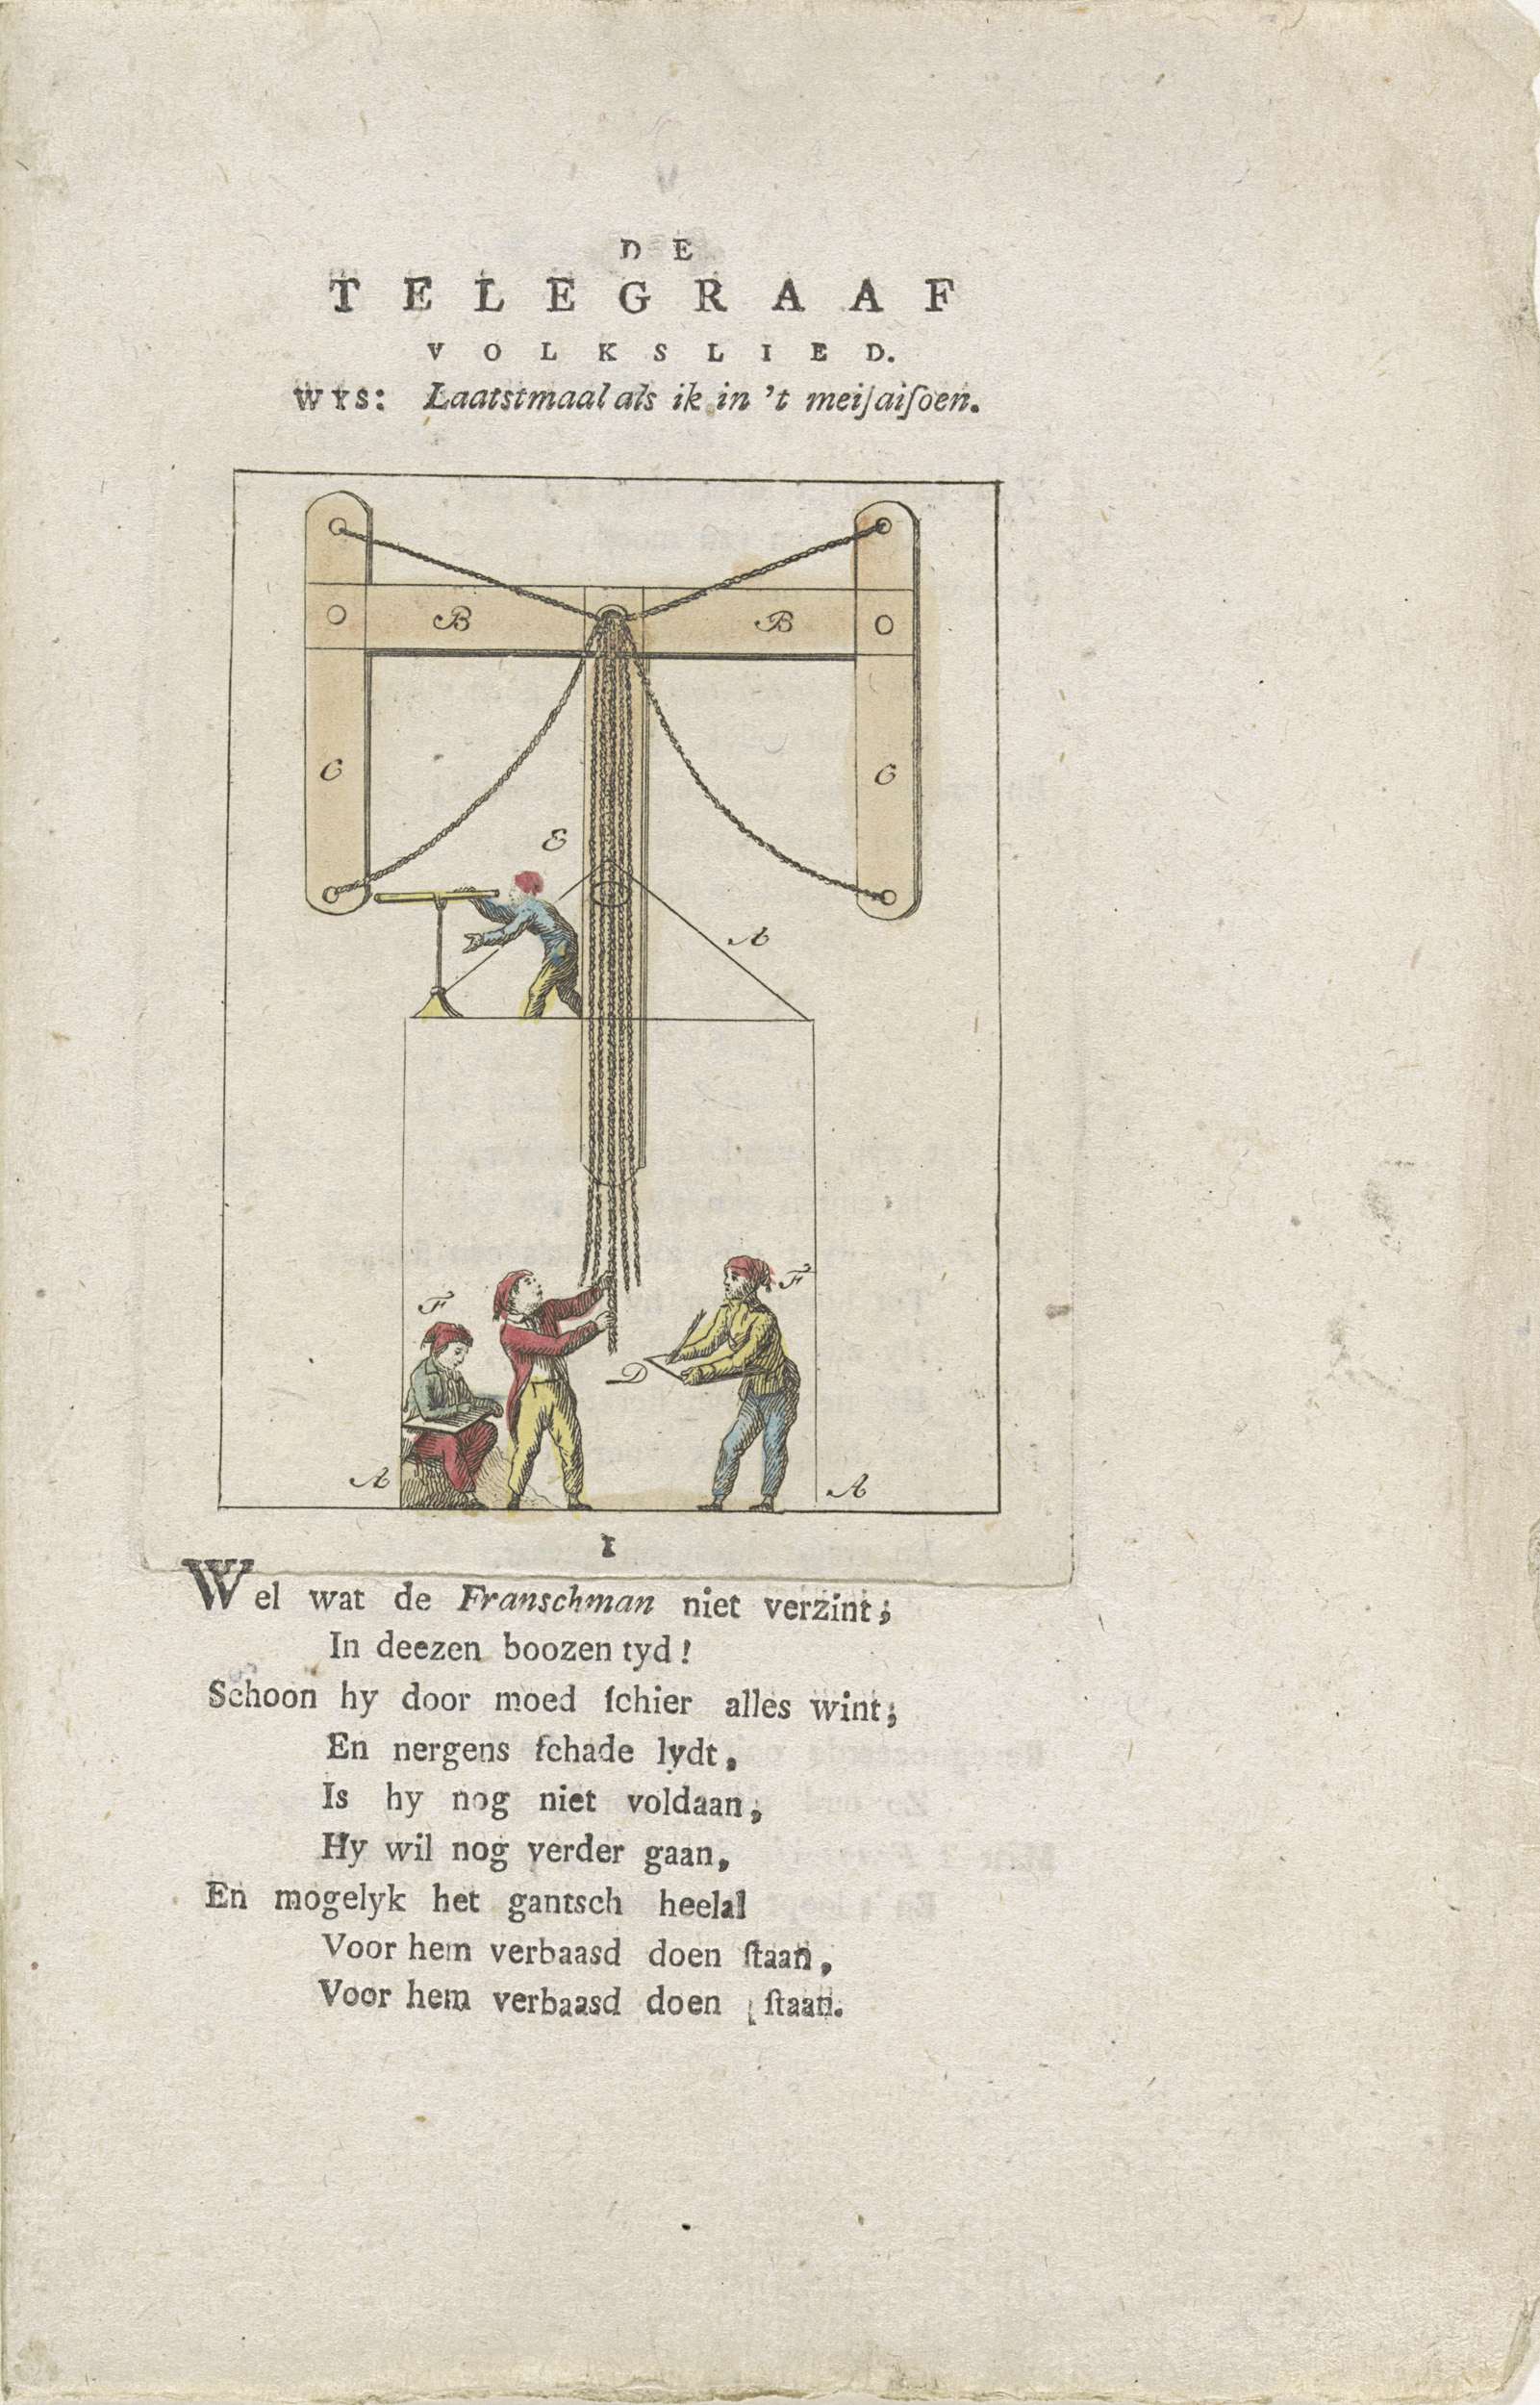 DE
TELEGRAAF
VOLKSLIED.
WYS: Laatstmaal als ik in 't meiſaiſoen.
B B
C C
E
A
F F
D
A A
1
Wel wat de Franschman niet verzint;
In deezen boozen tyd!
Schoon hy door moed ſchier alles wint;
En nergens ſchade lydt,
Is hy nog niet voldaan,
Hy wil nog verder gaan,
En mogelyk het gantsch heelal
Voor hem verbaasd doen ſtaan,
Voor hem verbaasd doen ſtaan.